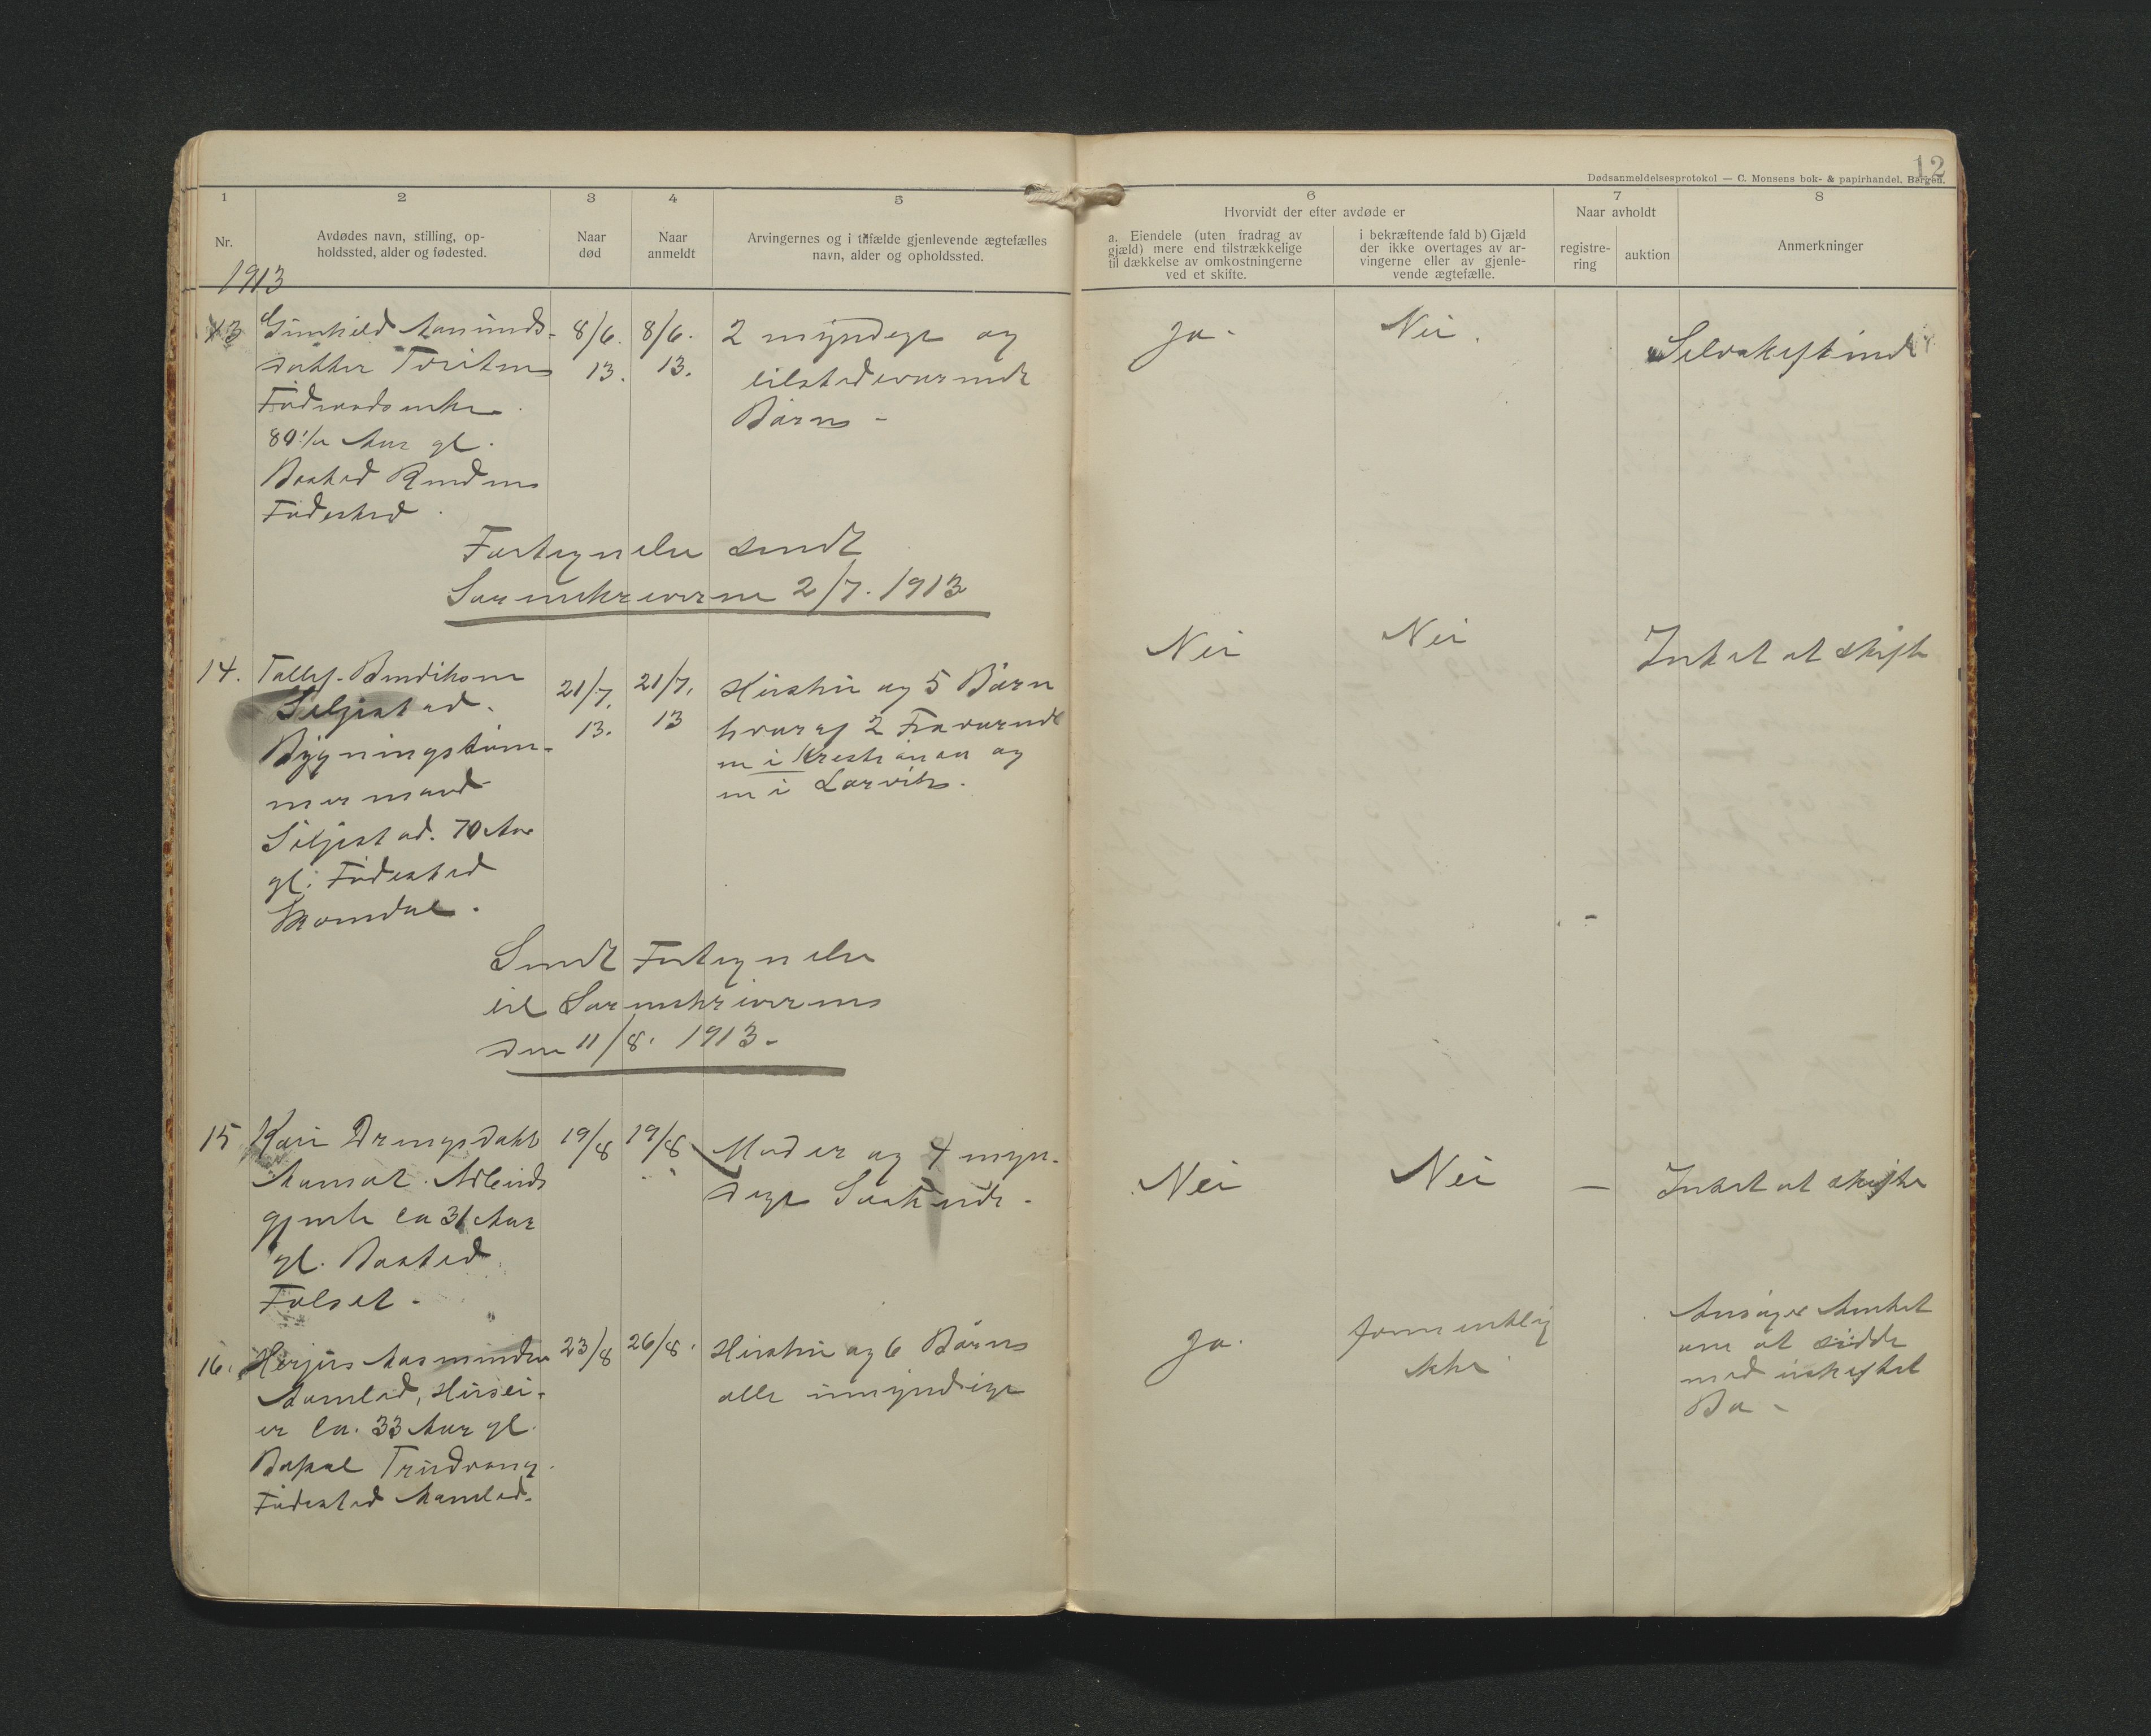 12
Dødsanmeldelsesprotokol — C. Monsens bok- & papirhandel, Bergen.
1 2 3 4 5 6 7 8
Nr.
Avdødes navn, stilling, op-
holdssted, alder og fødested.
Naar
død
Naar
anmeldt
Arvingernes og i tilfælde gjenlevende ægtefælles
navn, alder og opholdssted.
Hvorvidt der efter avdøde er
a. Eiendele (uten fradrag av
gjæld) mere end tilstrækkelige
til dækkelse av omkostningerne
ved et skifte.
i bekræftende fald b) Gjæld
der ikke overtages av ar-
vingerne eller av gjenle-
vende ægtefælle.
Naar avholdt
registre-
ring
auktion
Anmerkninger
1913
13
Gunhild Aasmunds-
datter
Føderaadsenke
Aar gl.
Bosted
Fødested
8/6.
13.
8/6.
13.
2 myndige og
tilstedeværende
Børn -
Ja -
Nei.
Selvskiftende
Fortegnelse sendt
Sorenskriveren 2/7. 1913
14.
Tallef Bendiksen
Siljestad.
Bygningstøm-
mermand
Siljestad. 70 Aar
gl. Fødested
21/7,
13.
21/7,
13
Hustru og 5 Børn
hvoraf 2 Fraværende
en i Kristiania og
en i Larvik.
Nei
Nei
Intet at skifte
Sendt Fortegnelse
til Sorenskriveren
den 11/8. 1913.-
15
Kari Drengsdatter
ca 31 Aar
gl. Bosted
Folset -
19/8
19/8
Moder og 4 myn-
dige Søskende -
Nei
Nei
—
Intet at skifte
16.
Herjus Aasmundsen
Aamlid, Husei-
er ca. 33 Aar gl.
Bopæl Trudvang.
Fødested Aamlid.
23/8
26/8.
Hustru og 6 Børn
alle umyndige
Ja.
formentlig
ikke
Ansøger Amtet
om at sidde
med uskiftet
Bo -